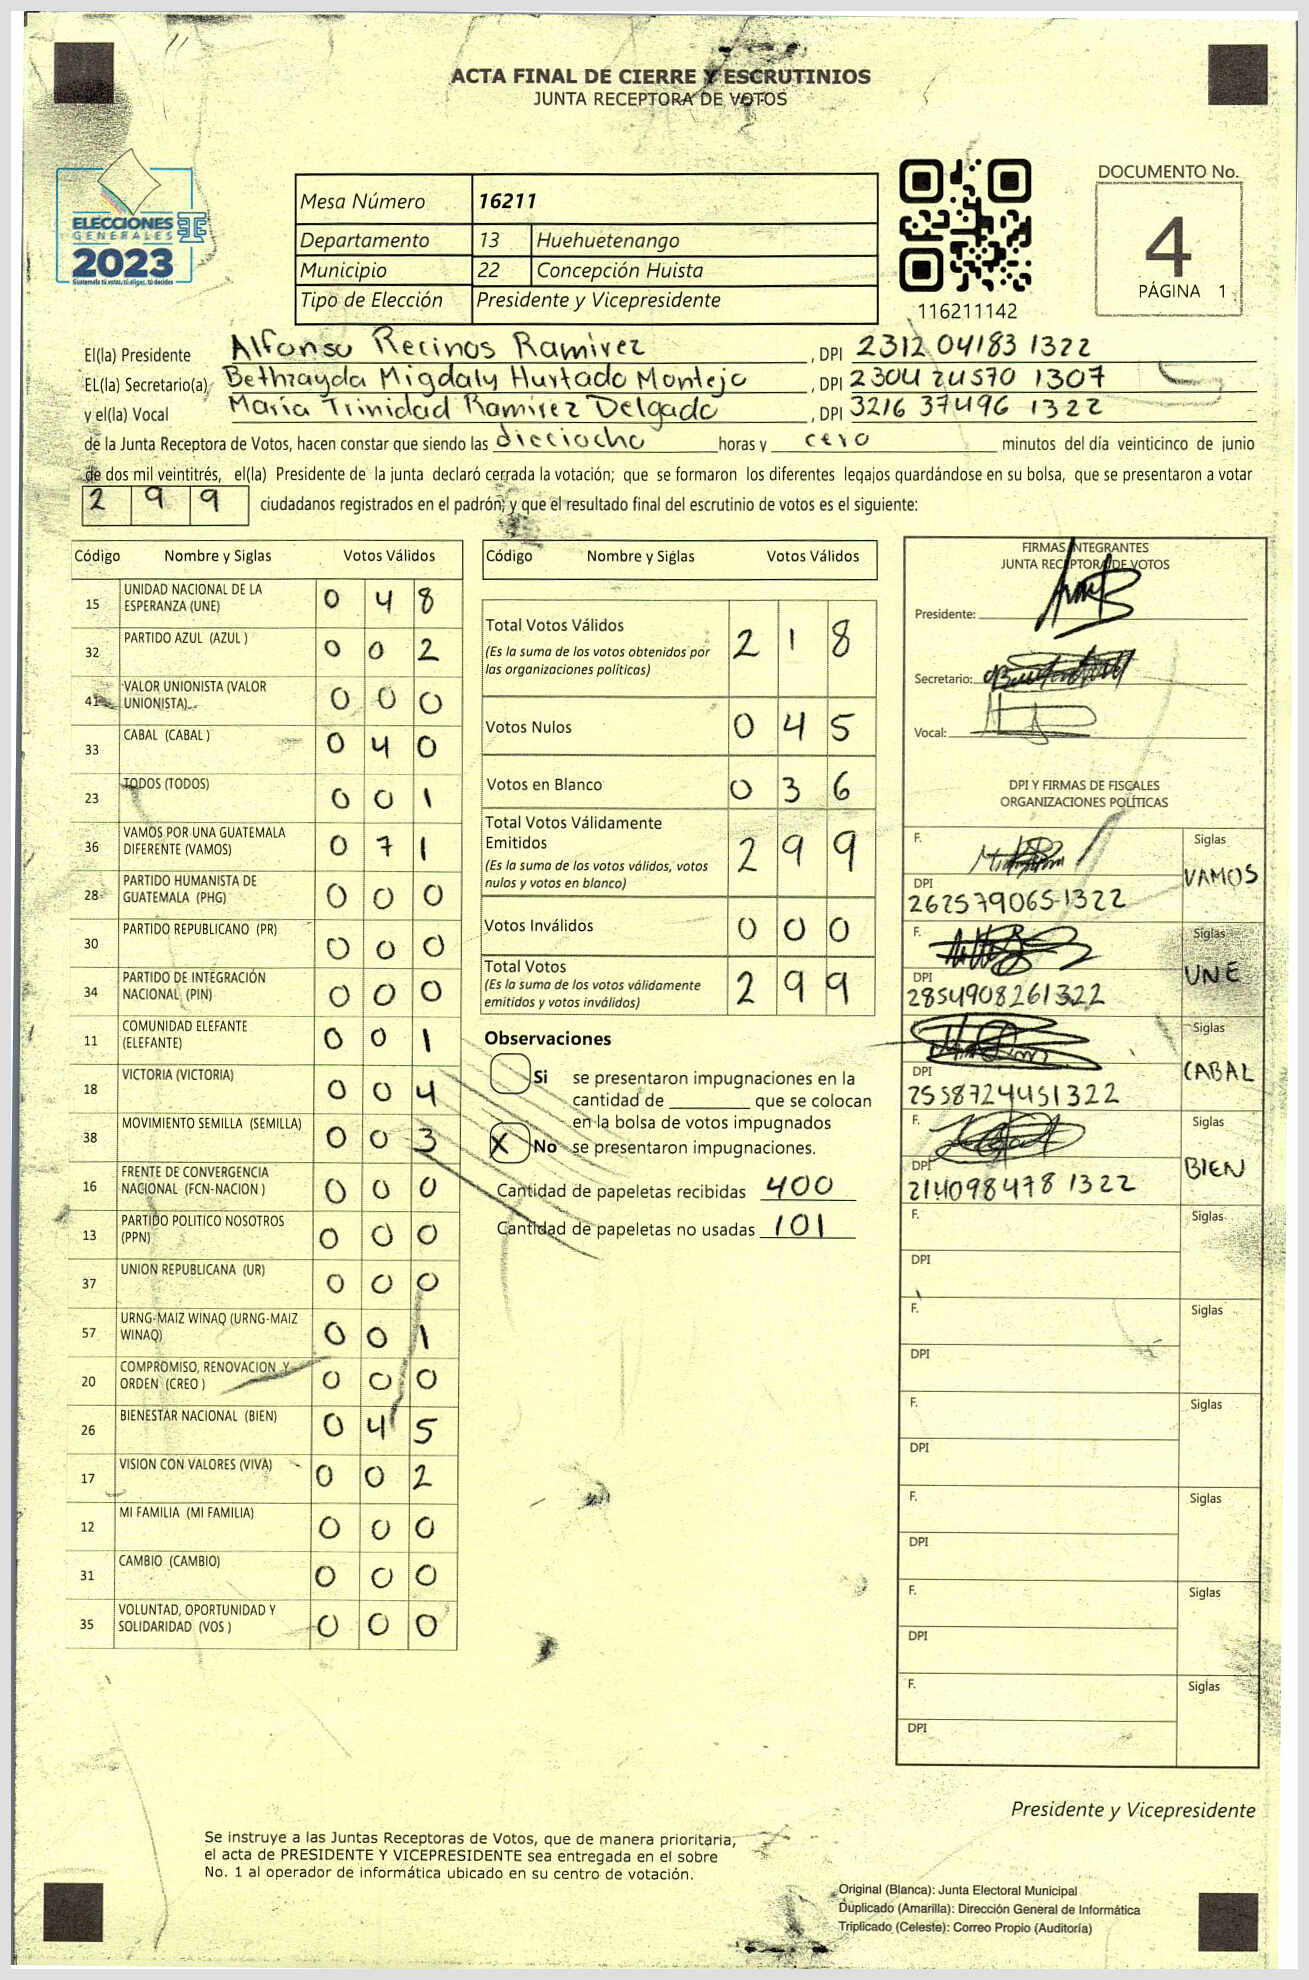 ACTA FINAL DE CIERRE Y ESCRUTINIOS
JUNTA RECEPTORA DE VOTOS
ELECCIONES
GENERALES
2023
Guatemala tú votas, tú eliges, tú decides
Mesa Número 16211
Departamento 13 Huehuetenango
Municipio 22 Concepción Huista
Tipo de Elección Presidente y Vicepresidente
116211142
DOCUMENTO No.
4
PÁGINA 1
El(la) Presidente Alfonso Recinos Ramirez, DPI 2312 04183 1322
EL(la) Secretario(a) Bethzayda Migdaly Hurtado Montejo, DPI 2304 24570 1307
y el(la) Vocal María Trinidad Ramírez Delgado, DPI 3216 37496 1322
de la Junta Receptora de Votos, hacen constar que siendo las dieciocho horas y cero minutos del día veinticinco de junio
de dos mil veintitrés, el(la) Presidente de la junta declaró cerrada la votación; que se formaron los diferentes legajos guardándose en su bolsa, que se presentaron a votar
2 9 9 ciudadanos registrados en el padrón; y que el resultado final del escrutinio de votos es el siguiente:
Código Nombre y Siglas Votos Válidos
15 UNIDAD NACIONAL DE LA ESPERANZA (UNE) 0 4 8
32 PARTIDO AZUL (AZUL ) 0 0 2
41 VALOR UNIONISTA (VALOR UNIONISTA) 0 0 0
33 CABAL (CABAL ) 0 4 0
23 TODOS (TODOS) 0 0 1
36 VAMOS POR UNA GUATEMALA DIFERENTE (VAMOS) 0 7 1
28 PARTIDO HUMANISTA DE GUATEMALA (PHG) 0 0 0
30 PARTIDO REPUBLICANO (PR) 0 0 0
34 PARTIDO DE INTEGRACIÓN NACIONAL (PIN) 0 0 0
11 COMUNIDAD ELEFANTE (ELEFANTE) 0 0 1
18 VICTORIA (VICTORIA) 0 0 4
38 MOVIMIENTO SEMILLA (SEMILLA) 0 0 3
16 FRENTE DE CONVERGENCIA NACIONAL (FCN-NACION ) 0 0 0
13 PARTIDO POLITICO NOSOTROS (PPN) 0 0 0
37 UNION REPUBLICANA (UR) 0 0 0
57 URNG-MAIZ WINAQ (URNG-MAIZ WINAQ) 0 0 1
20 COMPROMISO, RENOVACION Y ORDEN (CREO ) 0 0 0
26 BIENESTAR NACIONAL (BIEN) 0 4 5
17 VISION CON VALORES (VIVA) 0 0 2
12 MI FAMILIA (MI FAMILIA) 0 0 0
31 CAMBIO (CAMBIO) 0 0 0
35 VOLUNTAD, OPORTUNIDAD Y SOLIDARIDAD (VOS ) 0 0 0
Código Nombre y Siglas Votos Válidos
Total Votos Válidos 2 1 8
(Es la suma de los votos obtenidos por
las organizaciones políticas)
Votos Nulos 0 4 5
Votos en Blanco 0 3 6
Total Votos Válidamente
Emitidos 2 9 9
(Es la suma de los votos válidos, votos
nulos y votos en blanco)
Votos Inválidos 0 0 0
Total Votos 2 9 9
(Es la suma de los votos válidamente
emitidos y votos inválidos)
Observaciones
Si se presentaron impugnaciones en la
cantidad de ________ que se colocan
en la bolsa de votos impugnados
X No se presentaron impugnaciones.
Cantidad de papeletas recibidas 400
Cantidad de papeletas no usadas 101
FIRMAS INTEGRANTES
JUNTA RECEPTORA DE VOTOS
Presidente:
Secretario:
Vocal:
DPI Y FIRMAS DE FISCALES
ORGANIZACIONES POLÍTICAS
F. Siglas VAMOS
DPI 262579065 1322
F. Siglas UNE
DPI 2854908261322
F. Siglas CABAL
DPI 2558724451322
F. Siglas BIEN
DPI 214098478 1322
F. Siglas
DPI
F. Siglas
DPI
F. Siglas
DPI
F. Siglas
DPI
F. Siglas
DPI
F. Siglas
DPI
Presidente y Vicepresidente
Se instruye a las Juntas Receptoras de Votos, que de manera prioritaria,
el acta de PRESIDENTE Y VICEPRESIDENTE sea entregada en el sobre
No. 1 al operador de informática ubicado en su centro de votación.
Original (Blanca): Junta Electoral Municipal
Duplicado (Amarilla): Dirección General de Informática
Triplicado (Celeste): Correo Propio (Auditoría)